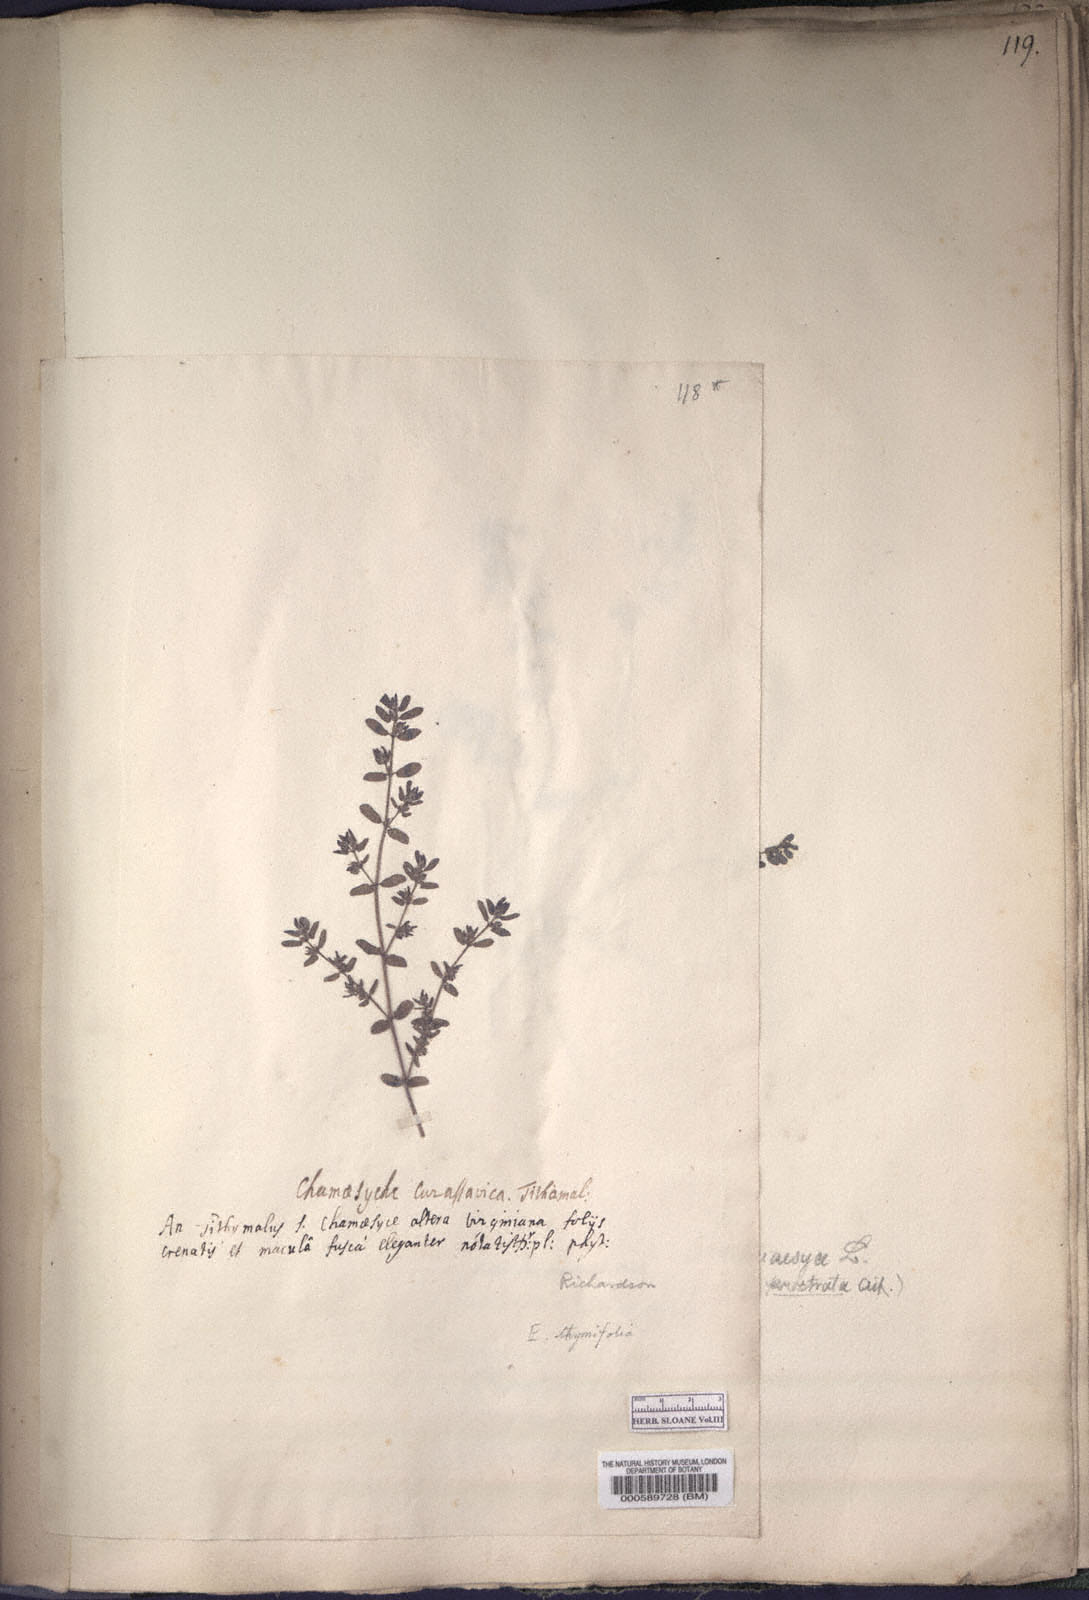 119.
118 *
Chamæsyche Curassavica. Tithamal:
An Tithymalus s. Chamæsyce altera Virginiana folijs
crenatis et maculâ fuscâ eleganter notatis pl: phyt:
Richardson
aesyce L.
prostrata Ait.)
E. thymifolia
HERB. SLOANE Vol.III
THE NATURAL HISTORY MUSEUM, LONDON
DEPARTMENT OF BOTANY
000589728 (BM)